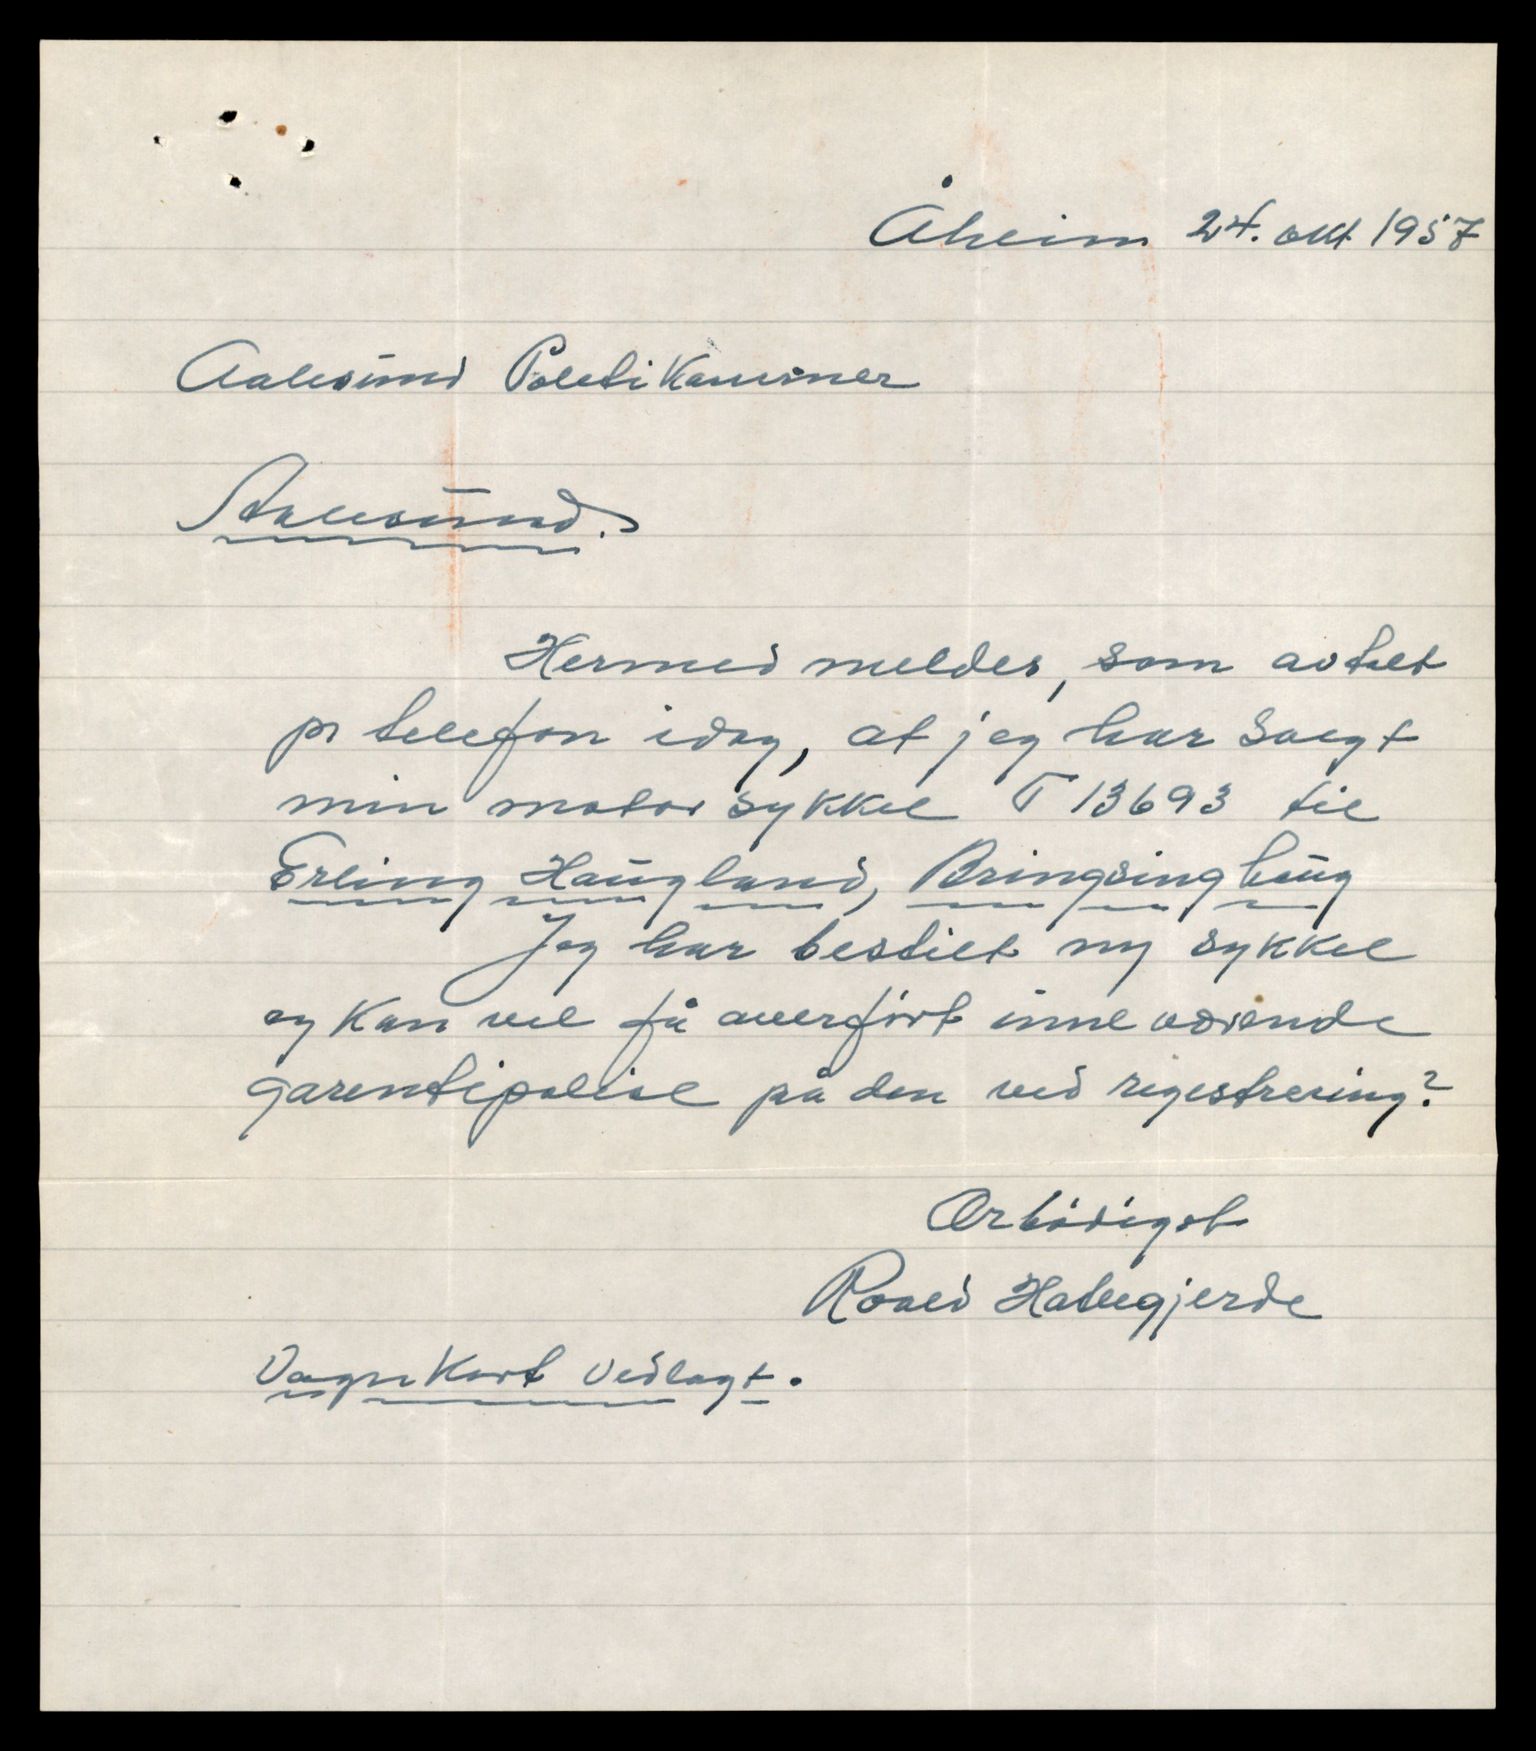 Åheim 24. okt 1957
Aalesund Politikammer
Aalesund.
Hermed meldes, som avtalt
pr telefon idag, at jeg har solgt
min motorsykkel T 13693 til
Erling Haugland, Bringsinghaug
Jeg har bestilt ny sykkel
og kan vel få overført inneværende
garentipolise på den ved regestrering?
Ærbødigst
Roald Hatlegjerde
Vognkort vedlagt.